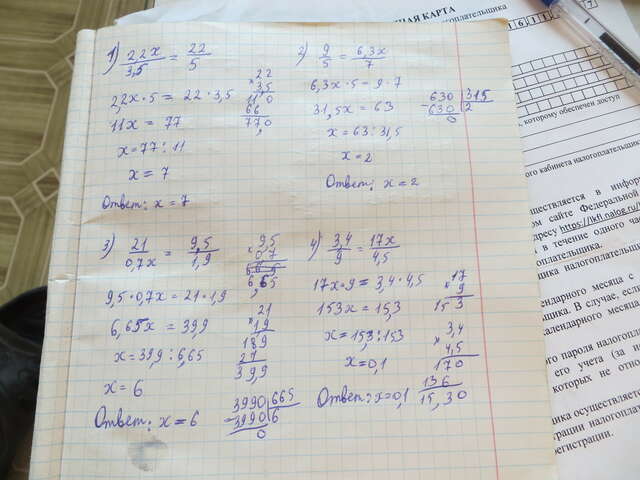 1) 22x/3,5 = 22/5
2,2x·5 = 22·3,5
11x = 77
x = 77 : 11
x = 7
Ответ: x = 7
22
× 3,5
110
66
77,0
2) 9/5 = 6,3x/7
6,3x·5 = 9·7
31,5x = 63
x = 63 : 31,5
x = 2
Ответ: x = 2
630 | 315
− 630 | 2
0
3) 21/0,7x = 9,5/1,9
9,5·0,7x = 21·1,9
6,65x = 39,9
x = 39,9 : 6,65
x = 6
Ответ: x = 6
9,5
× 0,7
6,65
21
× 1,9
189
21
39,9
3990 | 665
− 3990 | 6
0
4) 3,4/9 = 17x/4,5
17x·9 = 3,4·4,5
153x = 15,3
x = 15,3 : 153
x = 0,1
Ответ: x = 0,1
17
× 9
153
3,4
× 4,5
170
136
15,30
НАЯ КАРТА
логоплательщика
, которому обеспечен доступ
ого кабинета налогоплательщика
ществляется в инфор
ом сайте Федеральной
дресу https://lkfl.nalog.ru/
в течение одного ча
оплательщика.
ета налогоплательщика
лендарного месяца с
щика. В случае, если
алендарного месяца
го пароля налогопл
его учета (за и
которых не отно
ика осуществляется
страции налогоплат
регистрации.